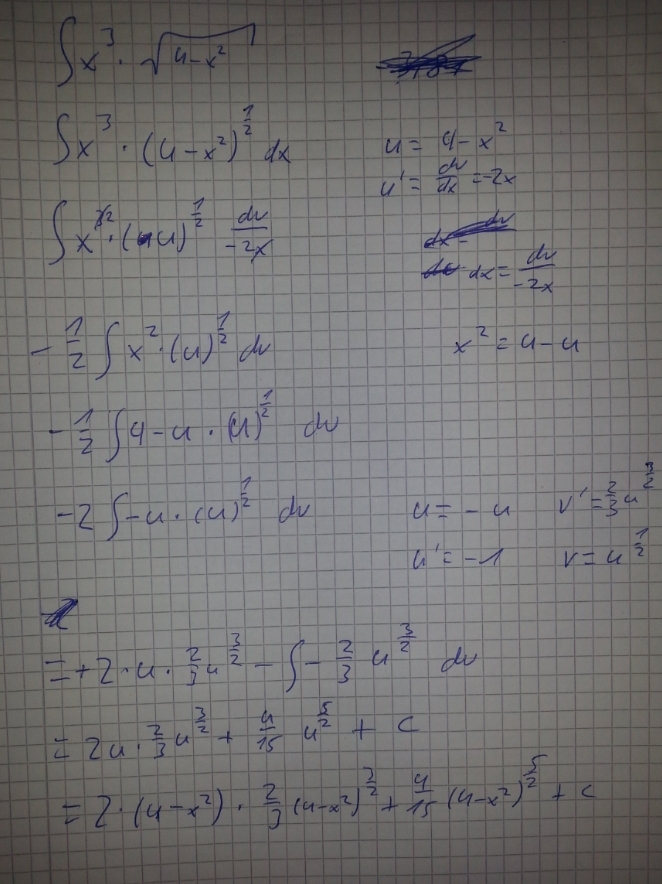 ∫ x³ · √(4-x²)
∫ x³ · (4-x²)^(1/2) dx    u = 4-x²
u' = du/dx = -2x
∫ x² · (u)^(1/2) du/-2x
dx = du/-2x
-1/2 ∫ x² · (u)^(1/2) du    x² = 4-u
-1/2 ∫ 4-u · (u)^(1/2) du
-2 ∫ -u · (u)^(1/2) du    u = -u    v' = 2/3 u^(3/2)
u' = -1    v = u^(1/2)
= +2 · u · 2/3 u^(3/2) - ∫ - 2/3 u^(3/2) du
= 2u · 2/3 u^(3/2) + 4/15 u^(5/2) + c
= 2 · (4-x²) · 2/3 (4-x²)^(3/2) + 4/15 (4-x²)^(5/2) + c